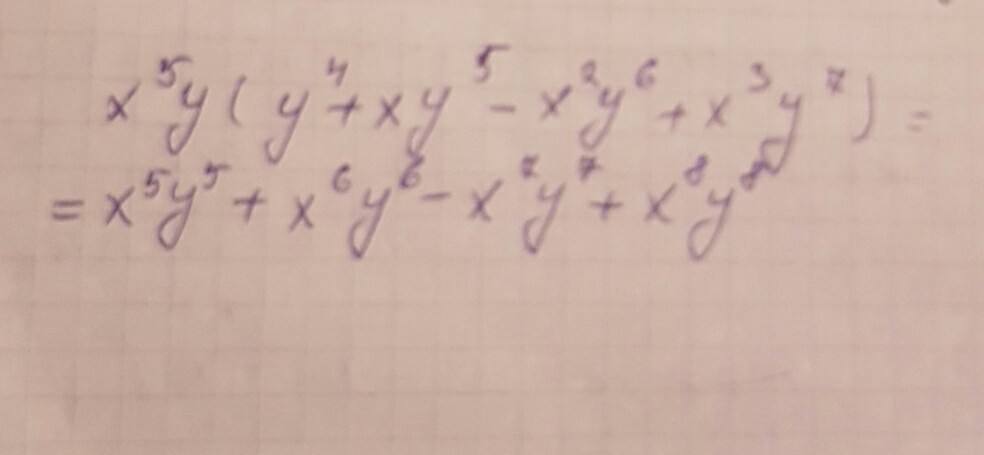 x⁵y(y⁴+xy⁵-x²y⁶+x³y⁷)=
=x⁵y⁵+x⁶y⁶-x⁷y⁷+x⁸y⁸